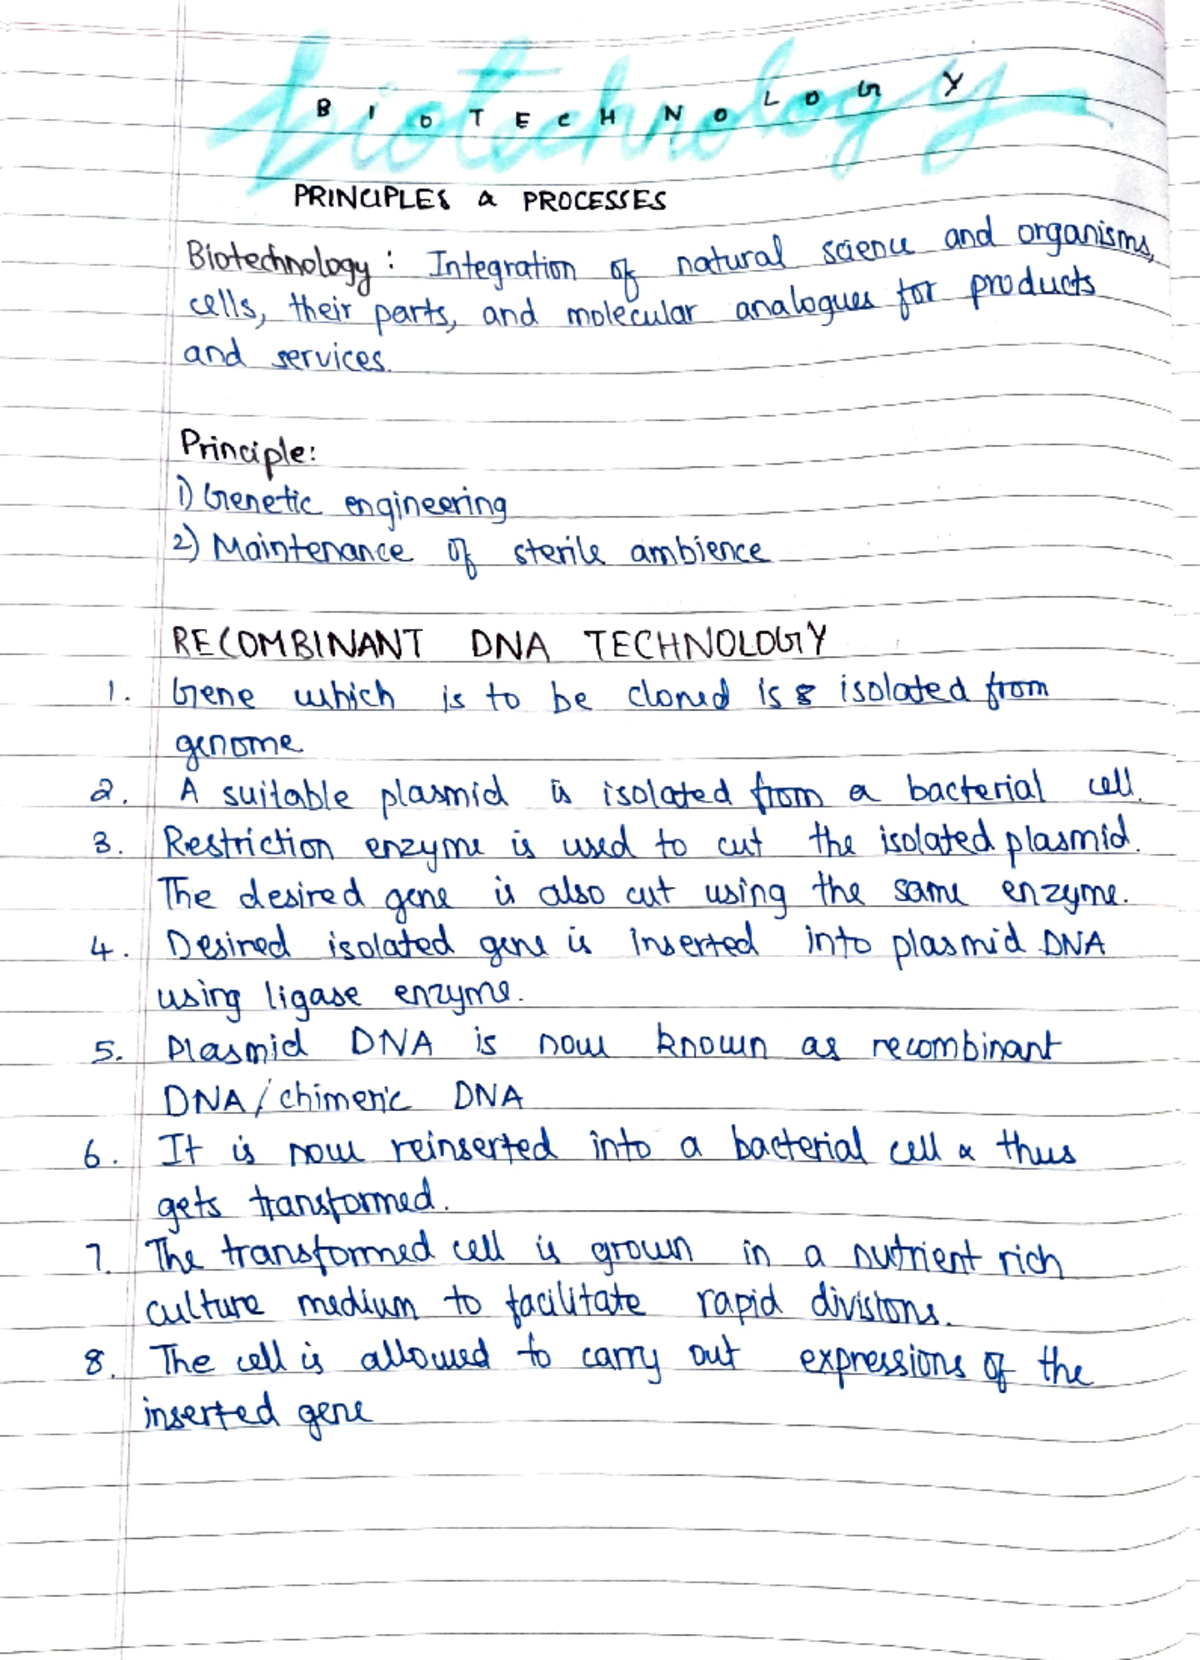 biotechnology
BIOTECHNOLOGY
PRINCIPLES & PROCESSES
Biotechnology : Integration of natural science and organisms,
cells, their parts, and molecular analogues for products
and services.
Principle:
1) Genetic engineering
2) Maintenance of sterile ambience
RECOMBINANT DNA TECHNOLOGY
1. Gene which is to be cloned is isolated from
genome
2. A suitable plasmid is isolated from a bacterial cell.
3. Restriction enzyme is used to cut the isolated plasmid.
The desired gene is also cut using the same enzyme.
4. Desired isolated gene is inserted into plasmid DNA
using ligase enzyme.
5. Plasmid DNA is now known as recombinant
DNA/chimeric DNA
6. It is now reinserted into a bacterial cell & thus
gets transformed.
7. The transformed cell is grown in a nutrient rich
culture medium to facilitate rapid divisions.
8. The cell is allowed to carry out expressions of the
inserted gene